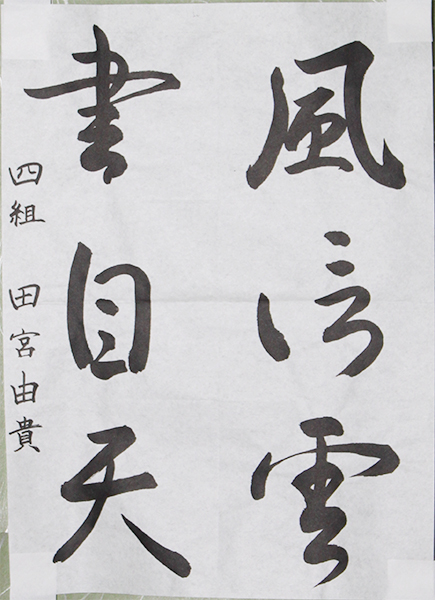 風信雲
書自天
四組 田宮由貴